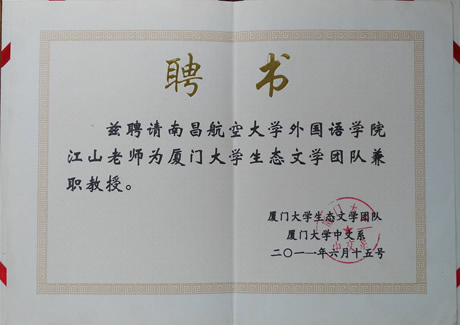 聘书
兹聘请南昌航空大学外国语学院
江山老师为厦门大学生态文学团队兼
职教授。
厦门大学生态文学团队
厦门大学中文系
二〇一一年六月十五号